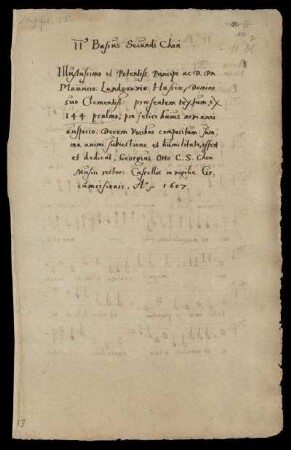 II. Bassus Secundi Chori
Illustrissimo et Potentiss. Principi ac D. Dn
Mauritio Landgravio Hassiæ, Domino
suo Clementiss. presentem textum, ex
144 psalmo, pro felici huius novi anni
auspicio. Decem Vocibus compositum sum,
ma animi subiectione, et humilitate, offert
et dedicat, Georgius Otto C. S. Chori
Musici rector: Cassellis in vigilia Cir,
cumcisionis, Aº. 1607
13